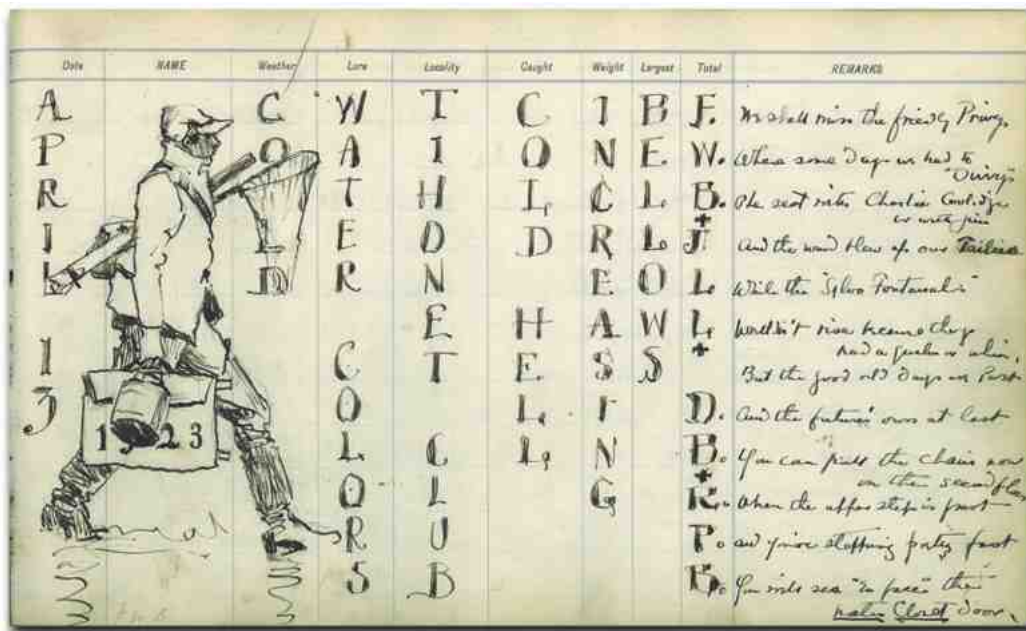 Date NAME Weather Lure Locality Caught Weight Largest Total REMARKS
APRIL
13
1923
COLD
WATER
COLORS
TIHONET
CLUB
COLD
HELL
INCREASING
BELLOWS
F.
W.
B.
+
J.
L.
L.
+
D.
B.
+
K.
P.
K.
We shall miss the friendly Privy,
Where some days we had to
"Divvy"
The seat with Charlie
or with Jim
And the wind blew up our Tailies
While the
Wouldn't rise because they
had a or whim.
But the good old days are Past
And the future's ours at last
You can pull the chain now
on the second floor
When the upper step is
and you're stepping pretty fast
You will see "en face" the
water Closet door.